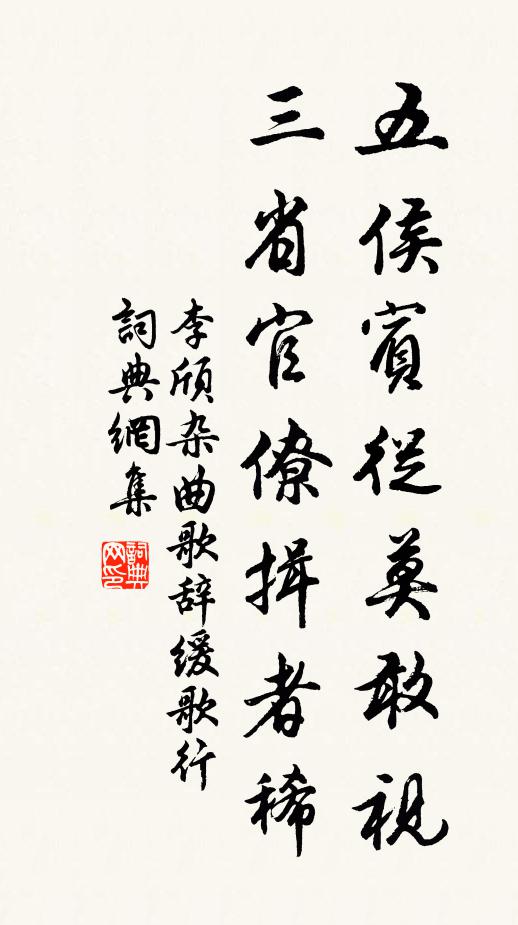 五侯賓從莫敢視
三省官僚揖者稀
李頎杂曲歌辞缓歌行
詞典網集
詞典网印